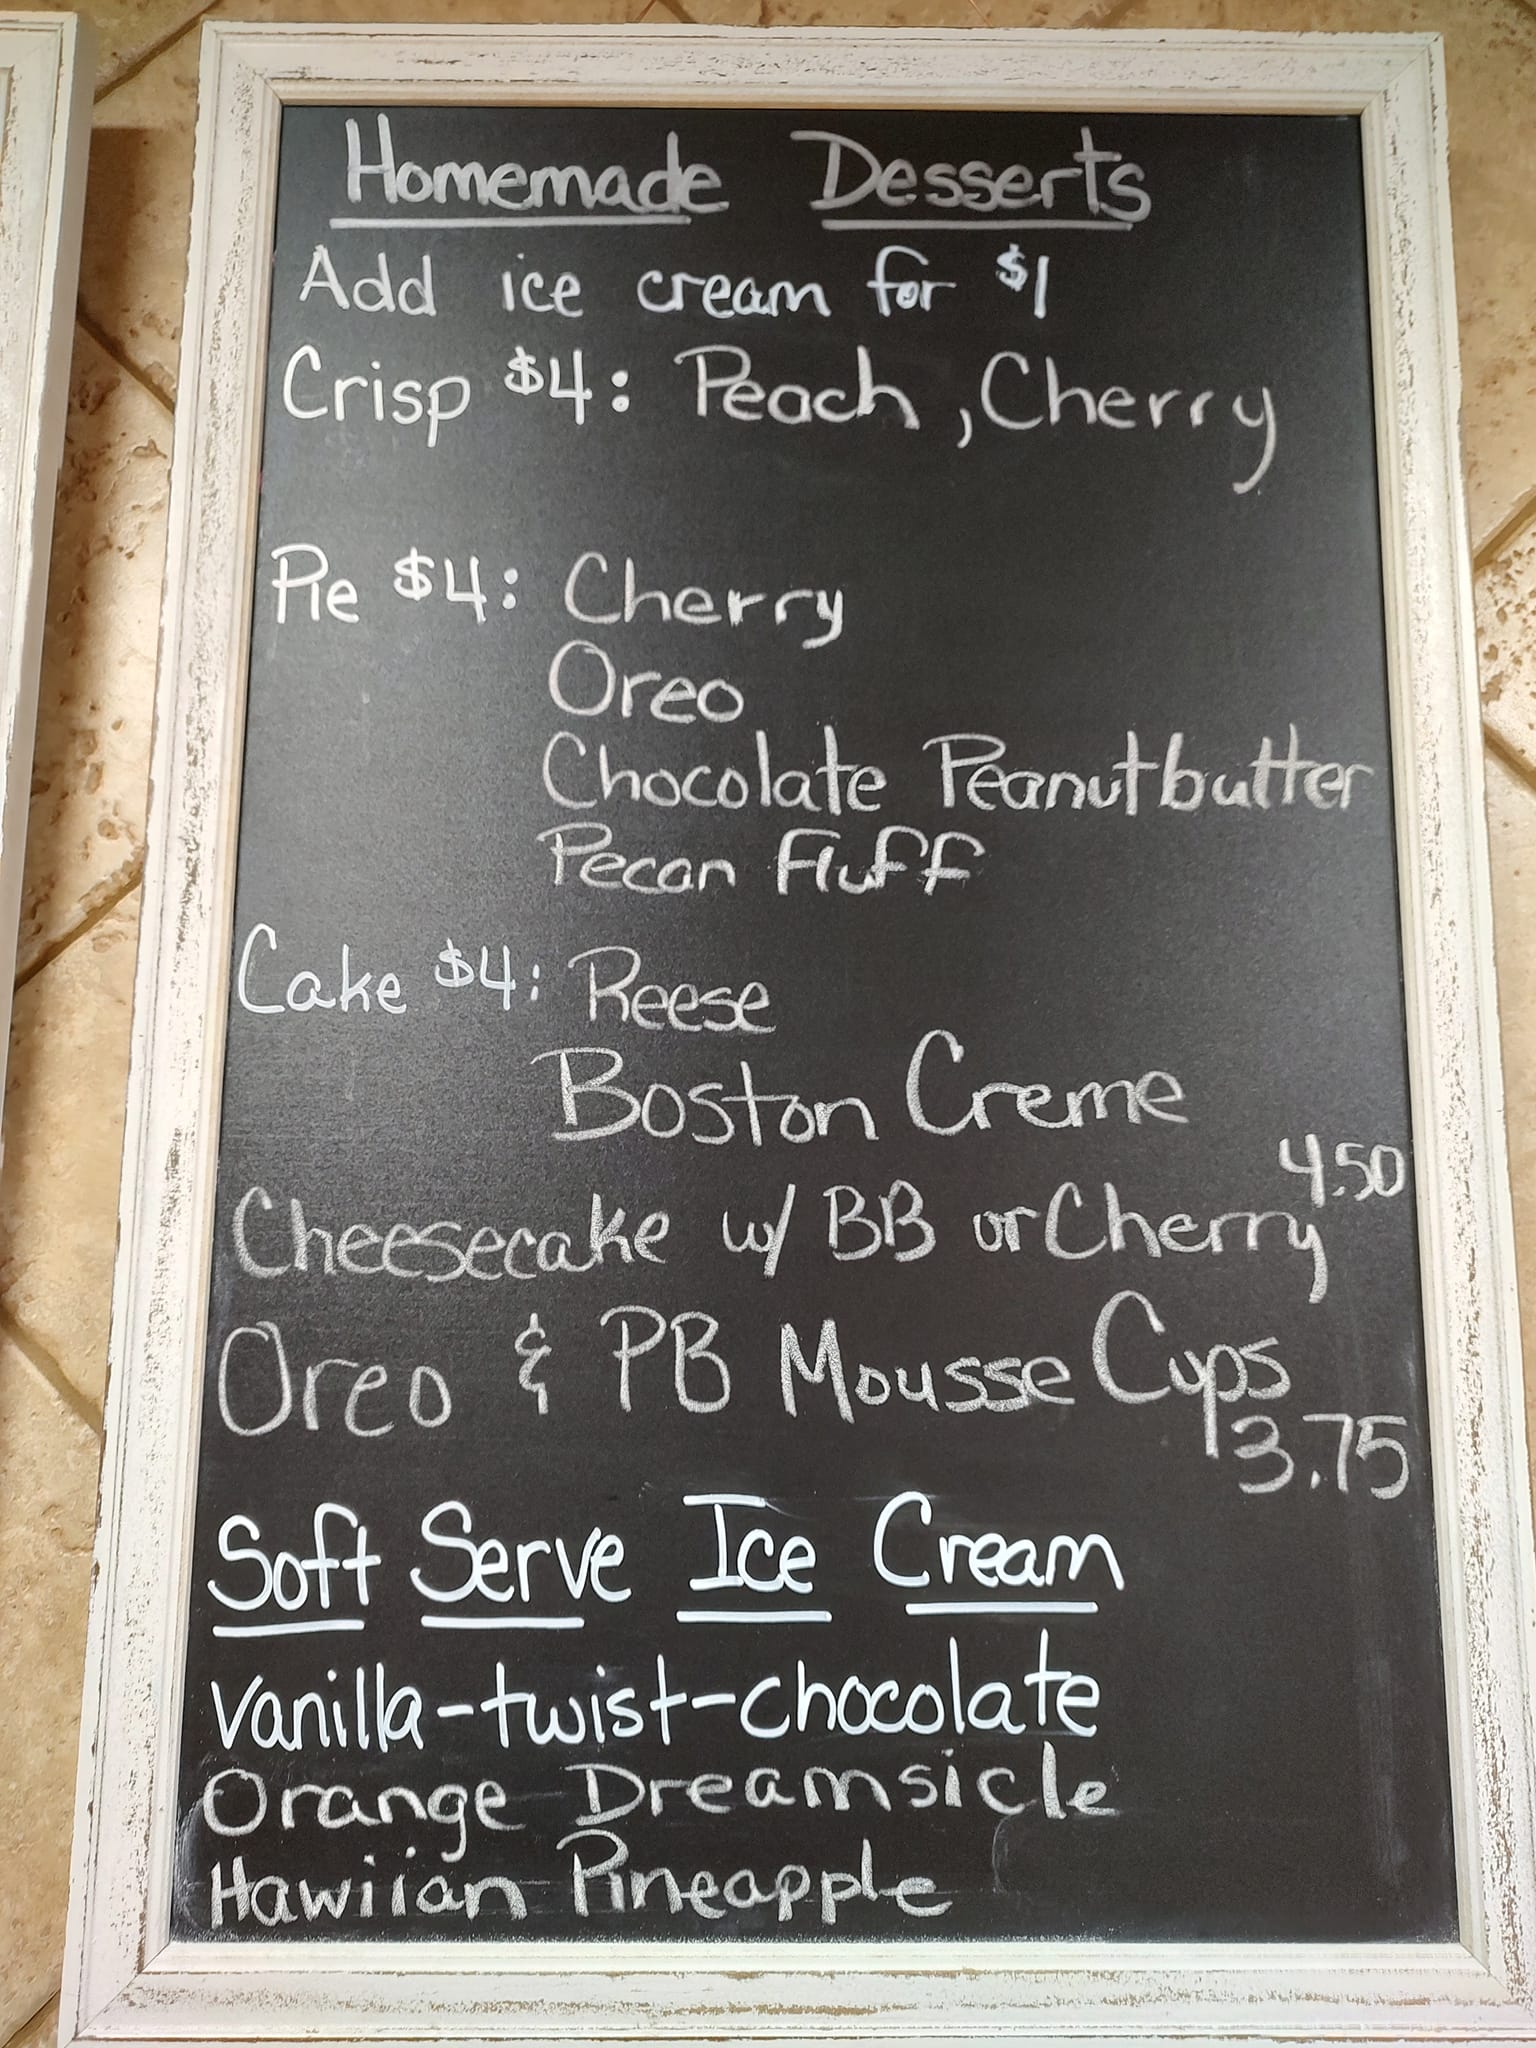 Homemade Desserts
Add ice cream for $1
Crisp $4: Peach, Cherry
Pie $4: Cherry
Oreo
Chocolate Peanutbutter
Pecan Fluff
Cake $4: Reese
Boston Creme
4.50
Cheesecake w/ BB or Cherry
Oreo & PB Mousse Cups
3.75
Soft Serve Ice Cream
Vanilla-twist-chocolate
Orange Dreamsicle
Hawiian Pineapple